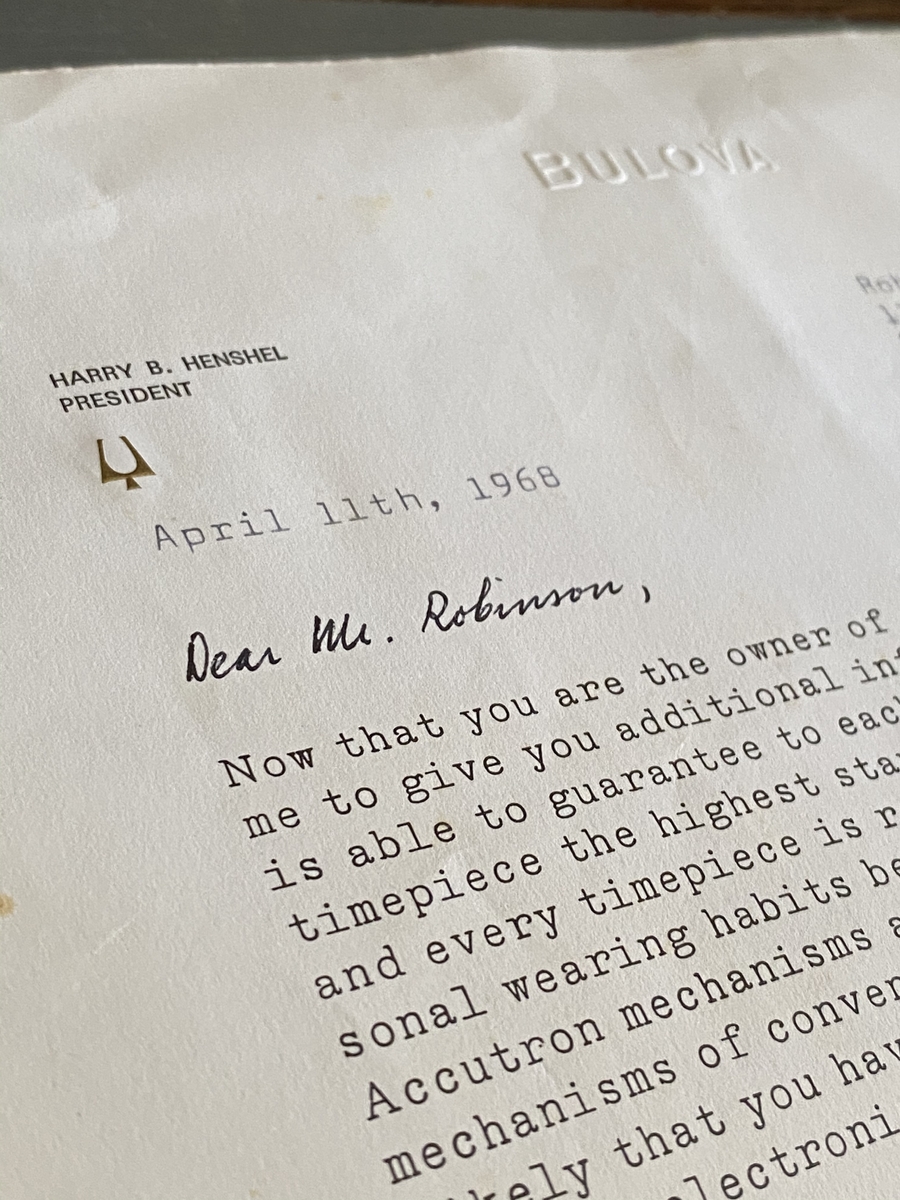 BULOVA
HARRY B. HENSHEL
PRESIDENT
April 11th, 1968
Dear Mr. Robinson,
Now that you are the owner of
me to give you additional
is able to guarantee to
timepiece the highest
and every timepiece is
sonal wearing habits
Accutron mechanisms
mechanisms of
that you